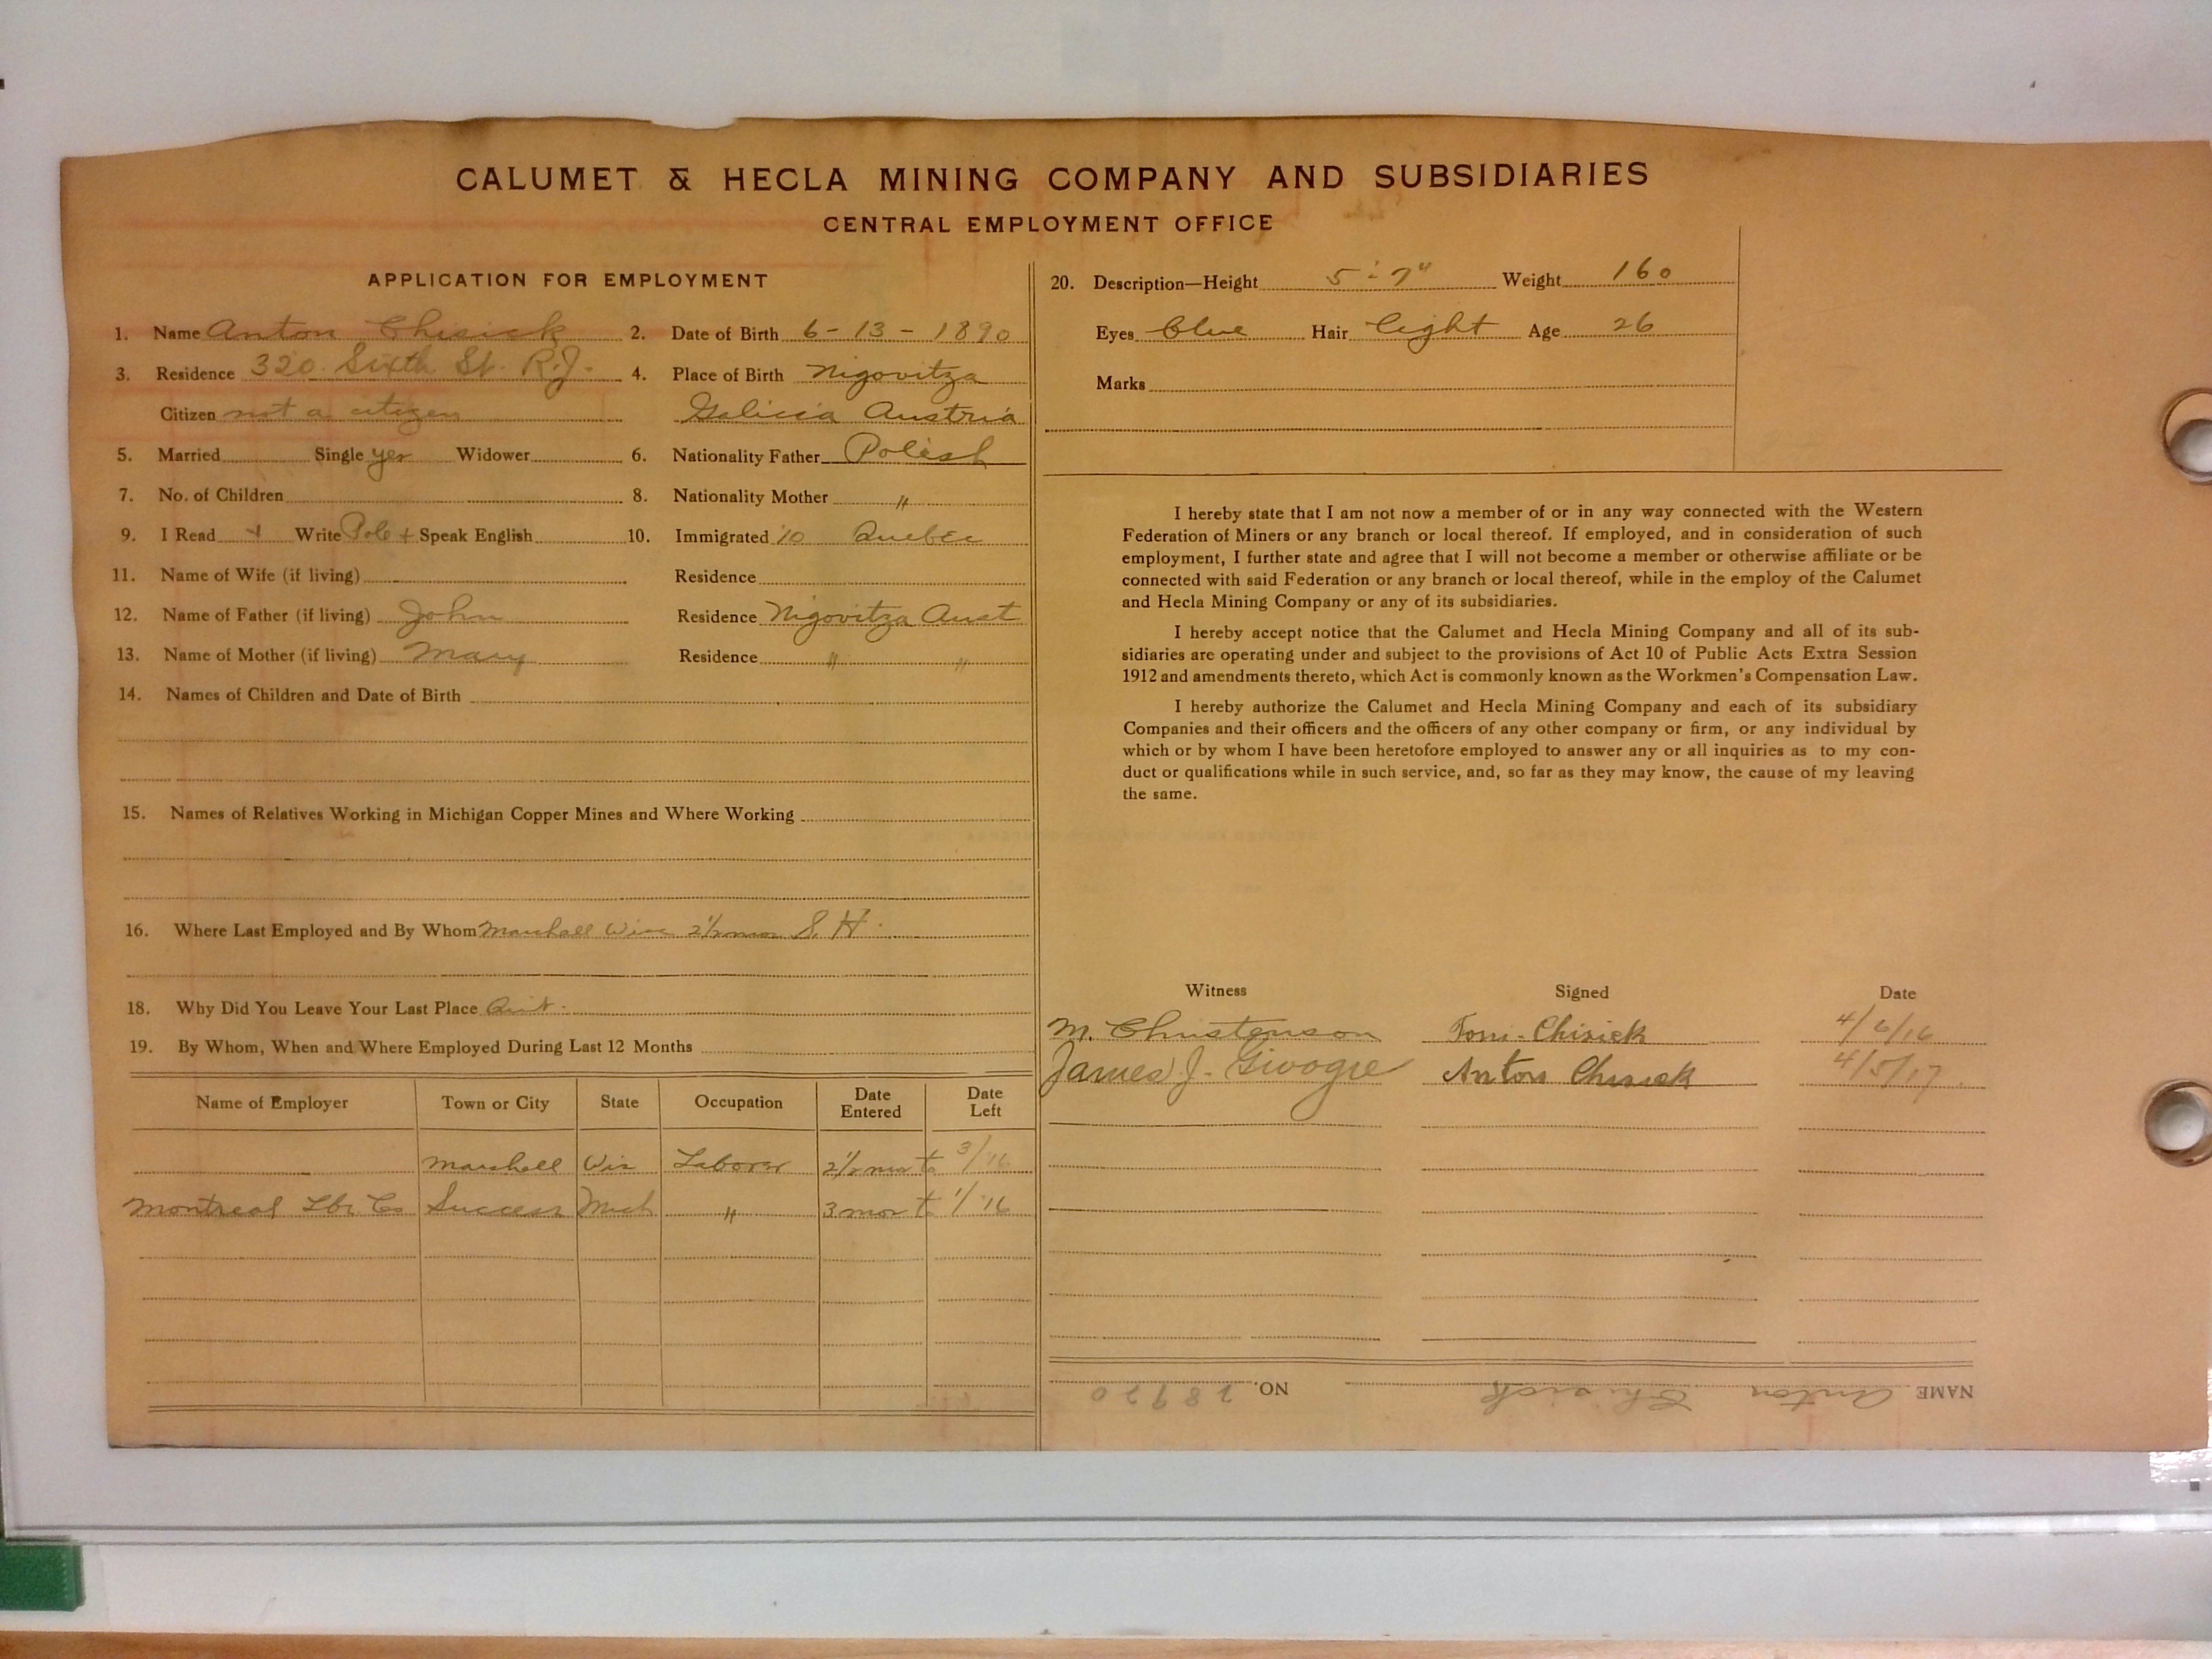 CALUMET & HECLA MINING COMPANY AND SUBSIDIARIES
CENTRAL EMPLOYMENT OFFICE
APPLICATION FOR EMPLOYMENT
1. Name Anton Chisick 2. Date of Birth 6-13-1890
3. Residence 320 Sixth St. R.J. 4. Place of Birth Nigovitza
Citizen not a citizen Galicia Austria
5. Married Single yes Widower 6. Nationality Father Polish
7. No. of Children 8. Nationality Mother "
9. I Read + Write Pole + Speak English 10. Immigrated '10 Quebec
11. Name of Wife (if living) Residence
12. Name of Father (if living) John Residence Nigovitza Aust
13. Name of Mother (if living) Mary Residence " "
14. Names of Children and Date of Birth
15. Names of Relatives Working in Michigan Copper Mines and Where Working
16. Where Last Employed and By Whom Marshall Wis 2½ mos S. H.
18. Why Did You Leave Your Last Place Quit.
19. By Whom, When and Where Employed During Last 12 Months
Name of Employer Town or City State Occupation Date Entered Date Left
Marshall Wis Laborer 2½ mos to 3/16
Montreal Lbr Co Success Mich " 3 mos to 1/16
20. Description—Height 5'-7" Weight 160
Eyes blue Hair light Age 26
Marks
I hereby state that I am not now a member of or in any way connected with the Western
Federation of Miners or any branch or local thereof. If employed, and in consideration of such
employment, I further state and agree that I will not become a member or otherwise affiliate or be
connected with said Federation or any branch or local thereof, while in the employ of the Calumet
and Hecla Mining Company or any of its subsidiaries.
I hereby accept notice that the Calumet and Hecla Mining Company and all of its sub-
sidiaries are operating under and subject to the provisions of Act 10 of Public Acts Extra Session
1912 and amendments thereto, which Act is commonly known as the Workmen's Compensation Law.
I hereby authorize the Calumet and Hecla Mining Company and each of its subsidiary
Companies and their officers and the officers of any other company or firm, or any individual by
which or by whom I have been heretofore employed to answer any or all inquiries as to my con-
duct or qualifications while in such service, and, so far as they may know, the cause of my leaving
the same.
Witness Signed Date
M. Christenson Toni Chisick 4/6/16
James J. Givogre Anton Chisick 4/5/17
NAME Anton Chisick NO. 28920